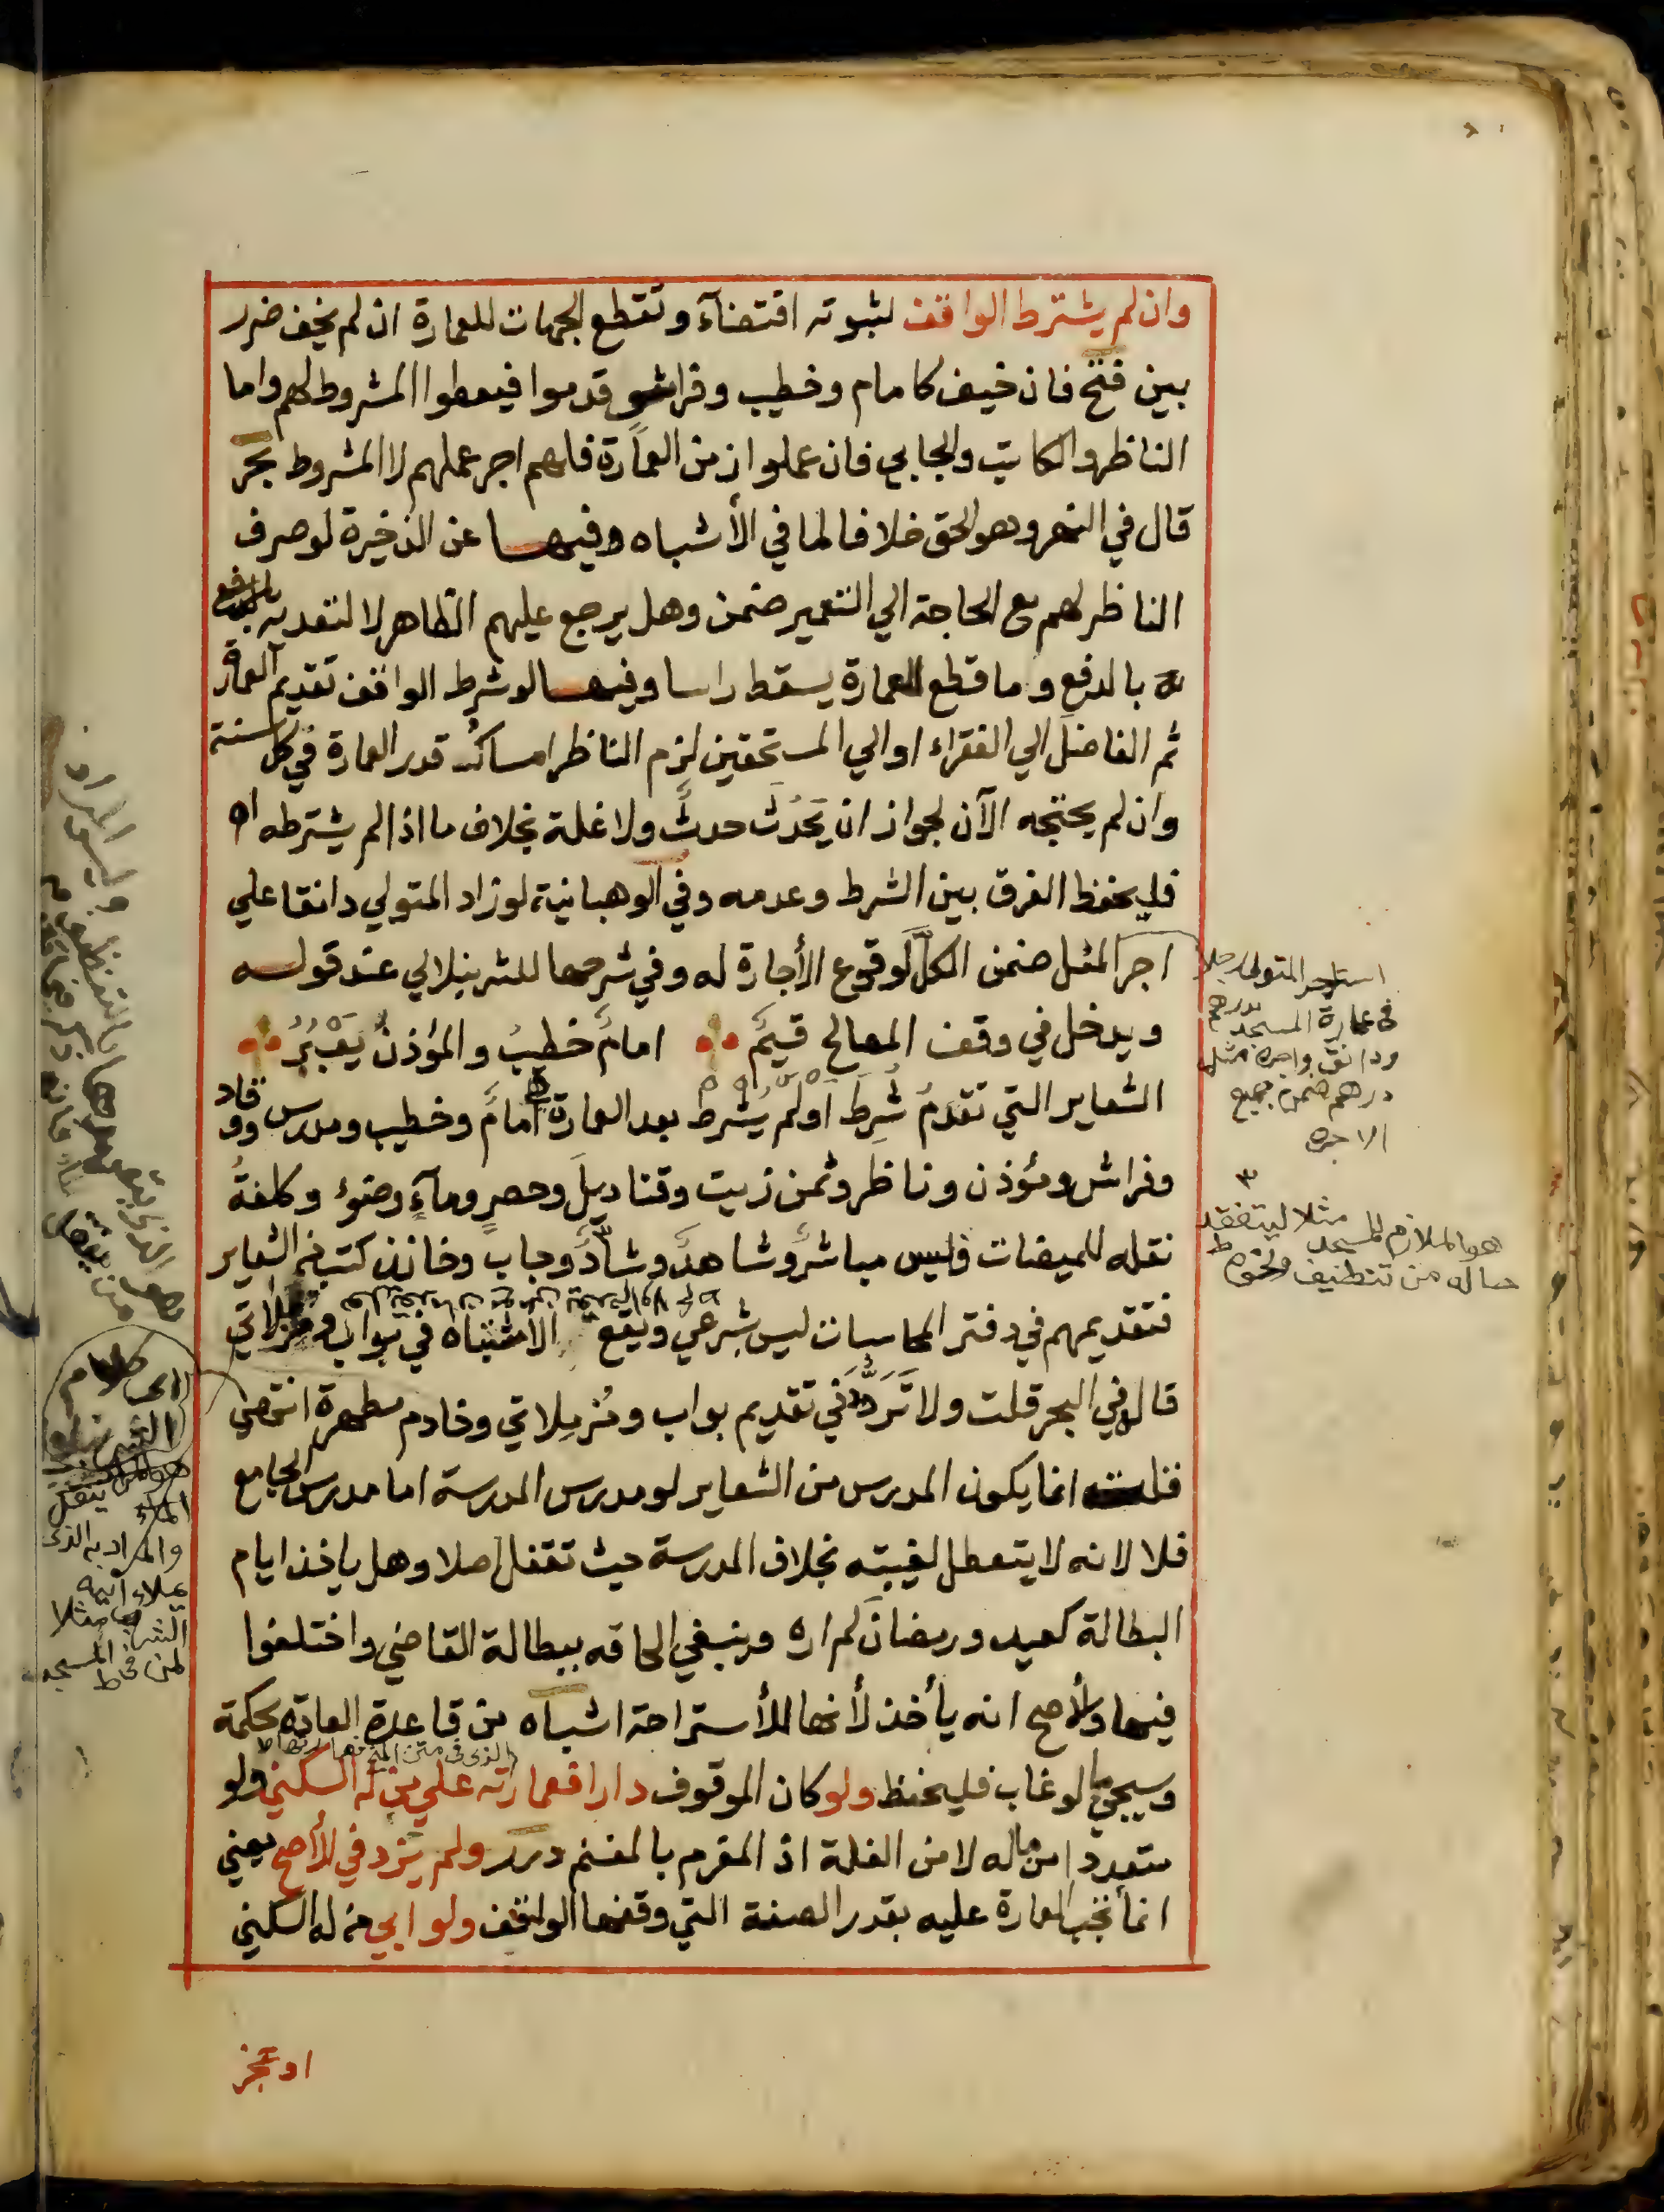 وان لم يشترط الواقف لثبوته اقتضآء وتقطع الجهات للعمارة ان لم يخف ضرر
بين فتح فان خيف كامام وخطيب وفراش قدموا فيعطوا المشروط لهم واما
الناظر والكاتب والجابي فان عملوا زمن العمارة فلهم اجر عملهم لا المشروط بحر
قال في النهر وهو الحق خلافا لما في الأشباه وفيها عن الذخيرة لو صرف
الناظر لهم مع الحاجة الي التعمير ضمن وهل يرجع عليهم الظاهر لا لتعديه
بالدفع وما قطع للعمارة يسقط راسا وفيها لو شرط الواقف تقديم العمارة
ثم الفاضل الي الفقراء او الي المستحقين لزم الناظر امساك قدر العمارة في كل سنة
وان لم يحتجه الآن لجواز ان يَحدُث حدثٌ ولا غلة بخلاف ما اذا لم يشترطه اه
فليحفظ الفرق بين الشرط وعدمه وفي الوهبانية لو زاد المتولي دانقا علي
اجر المثل ضمن الكلَّ لوقوع الأجارة له وفي شرحها للشرنبلالي عند قوله
ويدخل في وقف المصالح قيمٌ امامٌ خطيبٌ والمؤذنُ يَعْبُرُ
الشعاير التي تقدمُ شُرِطَ اولم يُشرط بعد العمارة امامٌ وخطيب ومدرس ووقاد
وفراش ومؤذن وناظر وثمن زيت وقناديلَ وحصرٍ ومآءٍ وضوء وكلفةُ
نقله للميضات فليس مباشرٌ وشاهدٌ وشادٌّ وجاب وخازن كتب من الشعاير
فتقديمهم في دفتر المحاسبات ليس بشرعي ويقع الاشتباه في بواب ومزملاتي
قال في البحر قلت ولا تَرَدُّدَ في تقديم بواب ومُزمِلاتي وخادم مطهرة انتهي
قلت انما يكون المدرس من الشعاير لو مدرس المدرسة اما مدرس الجامع
فلا لانه لا يتعطل لغيبته بخلاف المدرسة حيث تقفل اصلا وهل ياخذ ايام
البطالة كعيد ورمضان لم اره وينبغي الحاقه ببطالة القاضي واختلفوا
فيها والأصح انه يأخذ لأنها للأستراحة اشباه من قاعدة العادة محكمة
وسيجئ ما لو غاب فليحفظ ولو كان الموقوف دارا فعمارته علي من له السكني ولو
متعددا من ماله لا من الغلة اذ الغرم بالغنم درر ولم يزد في الأصح يعني
انما تجب العمارة عليه بقدر الصفة التي وقفها الواقف ولو ابي من له السكني
او عجز
استاجر المتولى رجلا
فى عمارة المسجد بدرهم
ودانق واجرة مثله
درهم ضمن جميع
الاجره
هو الملازم للمسجد مثلا ليتفقد
حاله من تنظيف ونحوه ط
الماء
والمراد به الذى
يملاء انية
الشرب مثلا
لمن فى المسجد ط